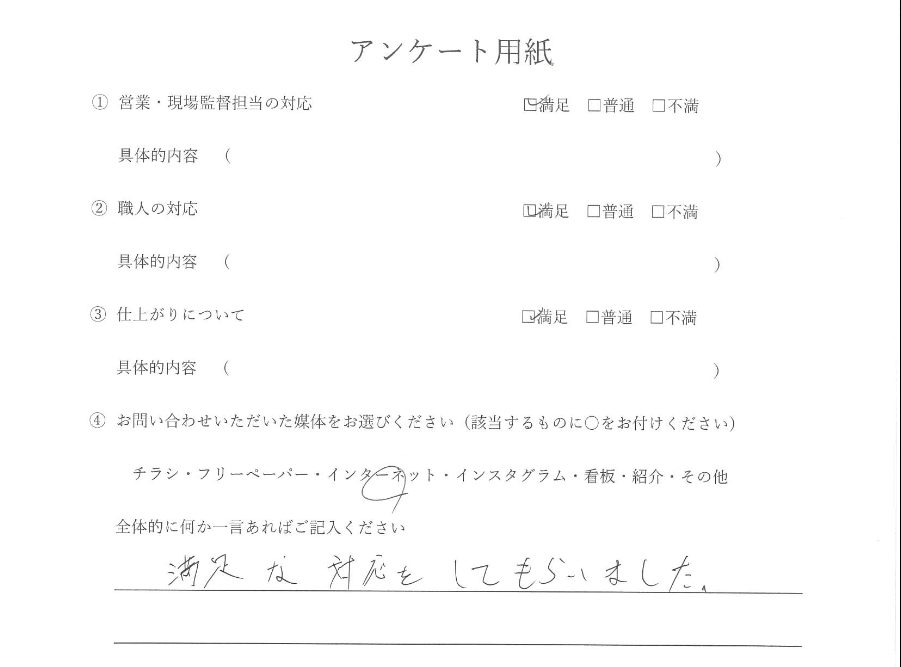 アンケート用紙
① 営業・現場監督担当の対応 ☑満足 □普通 □不満
具体的内容 ( )
② 職人の対応 ☑満足 □普通 □不満
具体的内容 ( )
③ 仕上がりについて ☑満足 □普通 □不満
具体的内容 ( )
④ お問い合わせいただいた媒体をお選びください(該当するものに○をお付けください)
チラシ・フリーペーパー・インターネット・インスタグラム・看板・紹介・その他
全体的に何か一言あればご記入ください
満足な対応をしてもらいました。